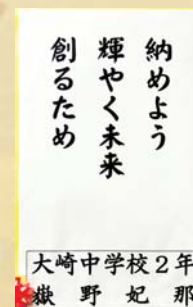 納めよう
輝やく未来
創るため
大崎中学校2年
嶽野妃那